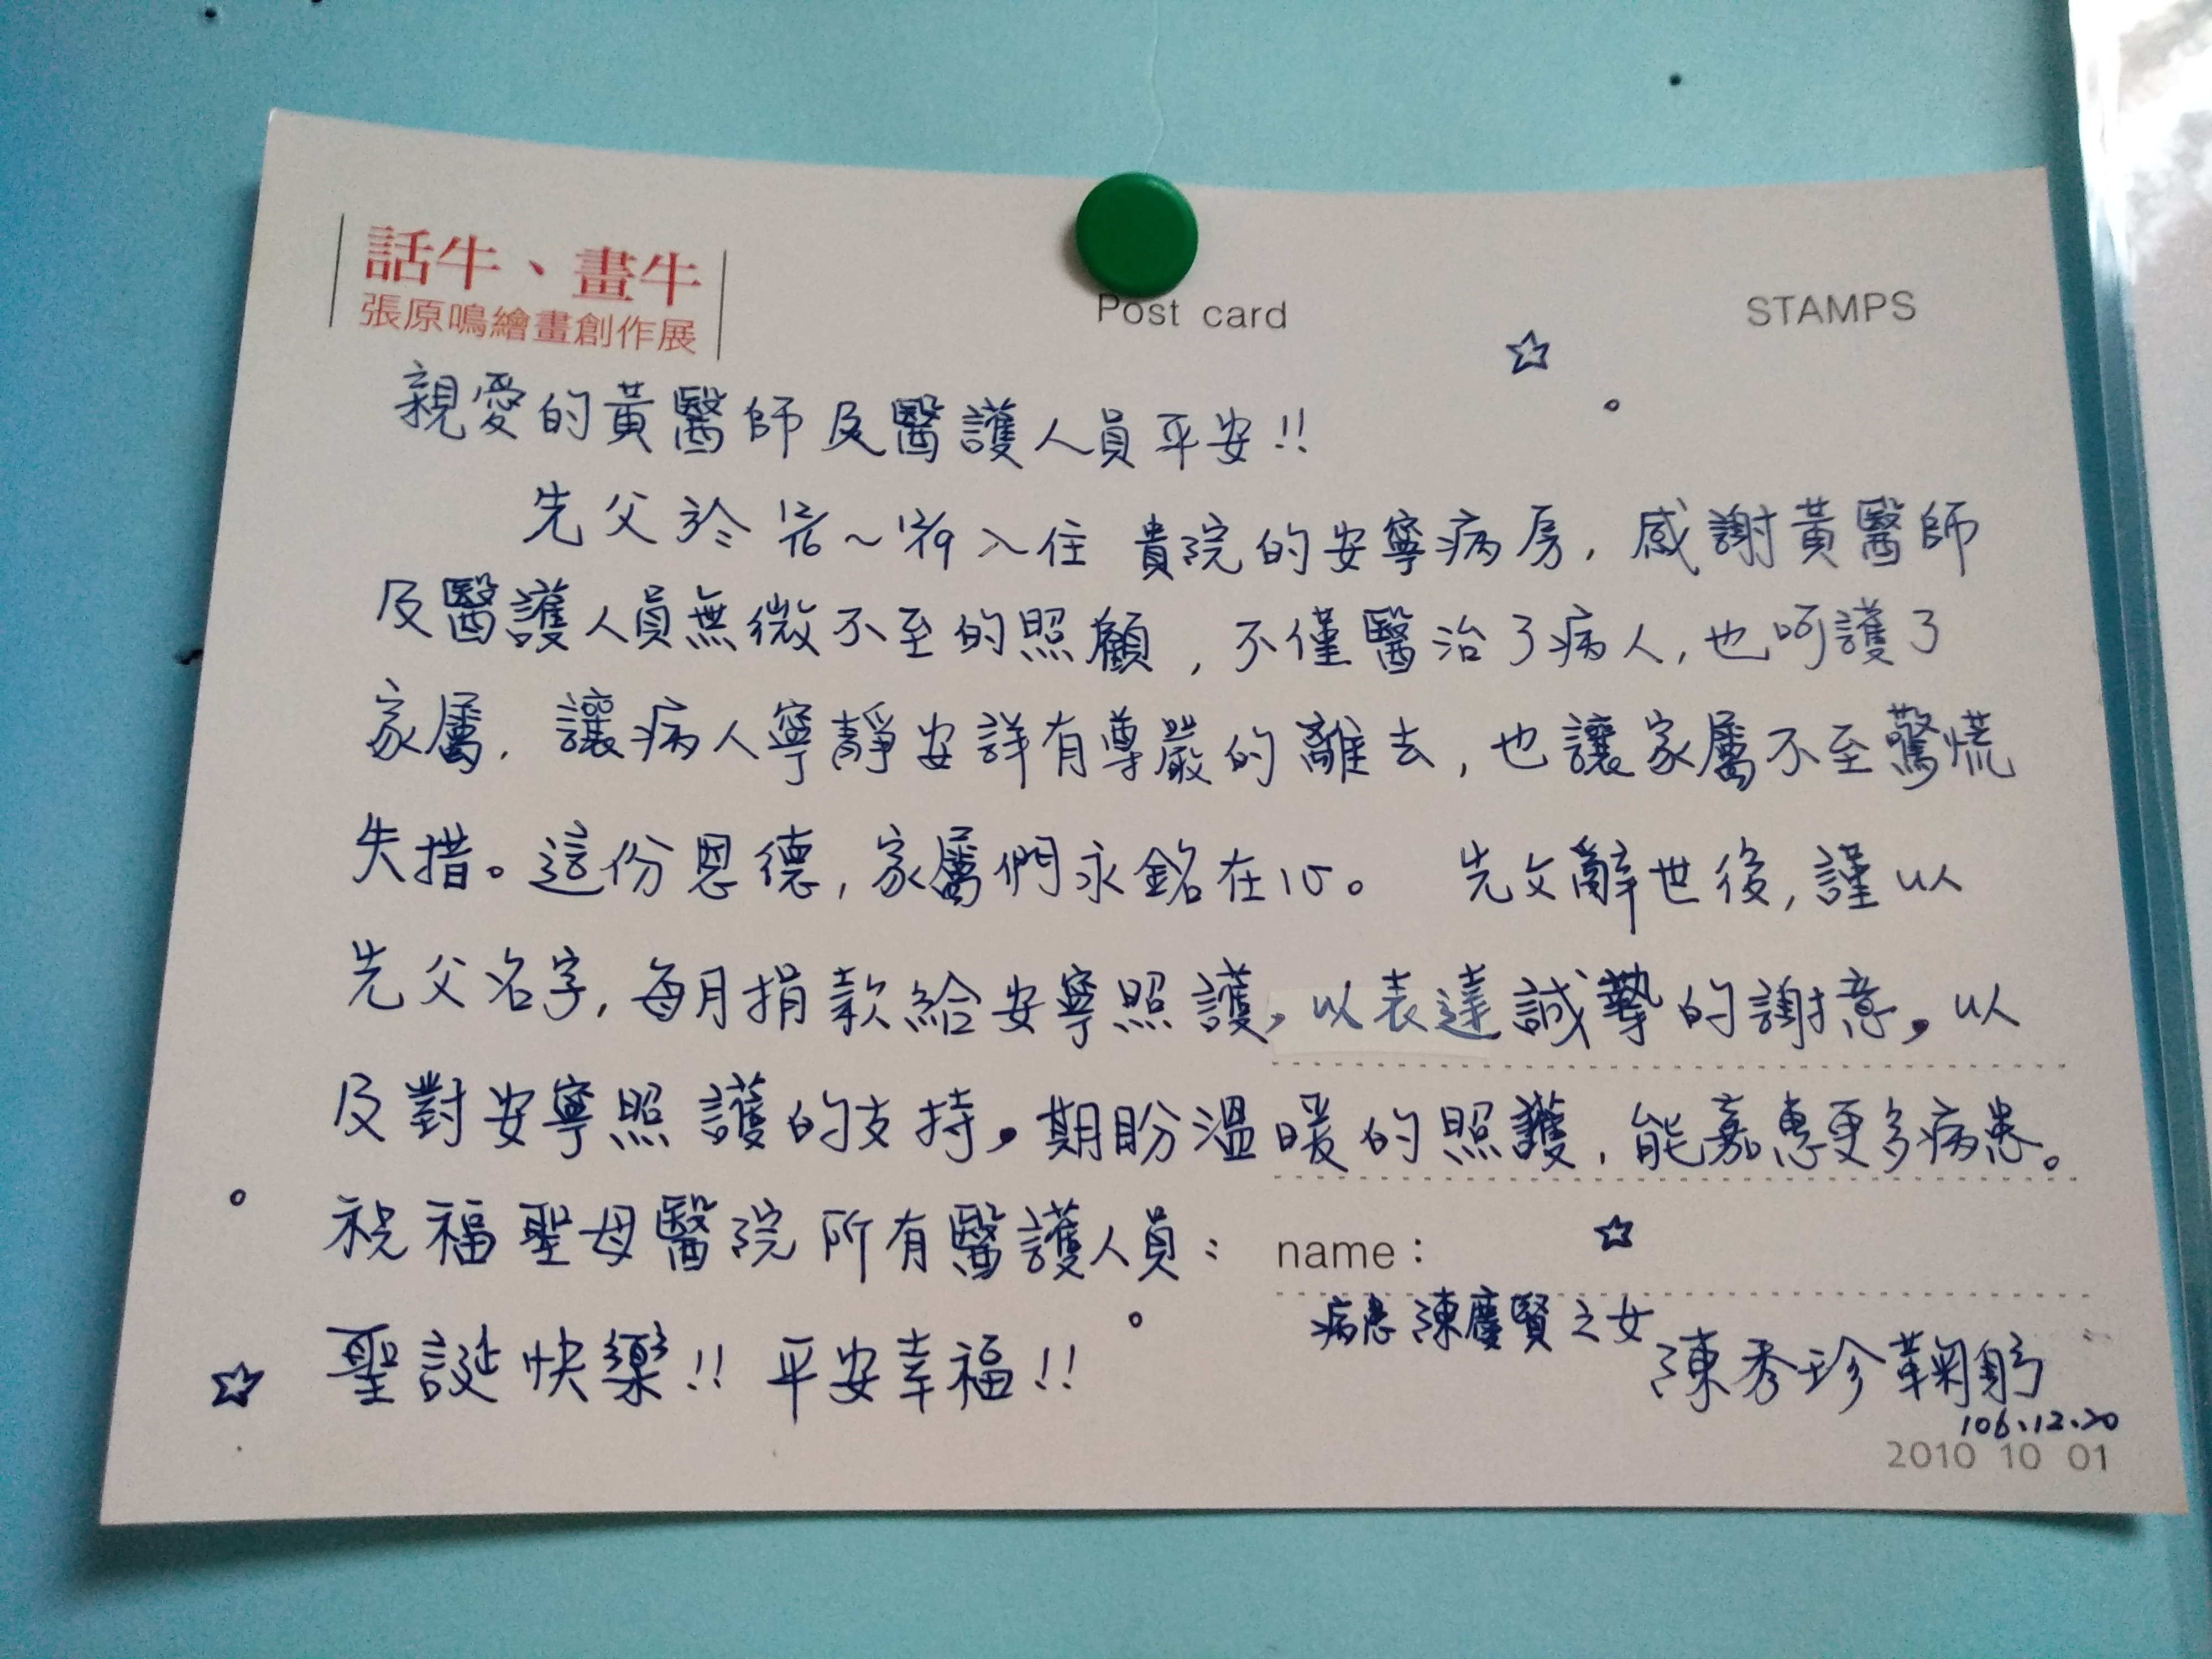 話牛、畫牛
張原鳴繪畫創作展
Post card
STAMPS
親愛的黃醫師及醫護人員平安!!
先父於12/6~12/9入住 貴院的安寧病房,感謝黃醫師
及醫護人員無微不至的照顧,不僅醫治了病人,也呵護了
家屬,讓病人寧靜安詳有尊嚴的離去,也讓家屬不至驚慌
失措。這份恩德,家屬們永銘在心。 先父辭世後,謹以
先父名字,每月捐款給安寧照護,以表達誠摯的謝意,以
及對安寧照護的支持,期盼溫暖的照護,能嘉惠更多病患。
祝福聖母醫院所有醫護人員:
name:
聖誕快樂!! 平安幸福!!
病患陳慶賢之女
陳秀珍鞠躬
106.12.20
2010 10 01